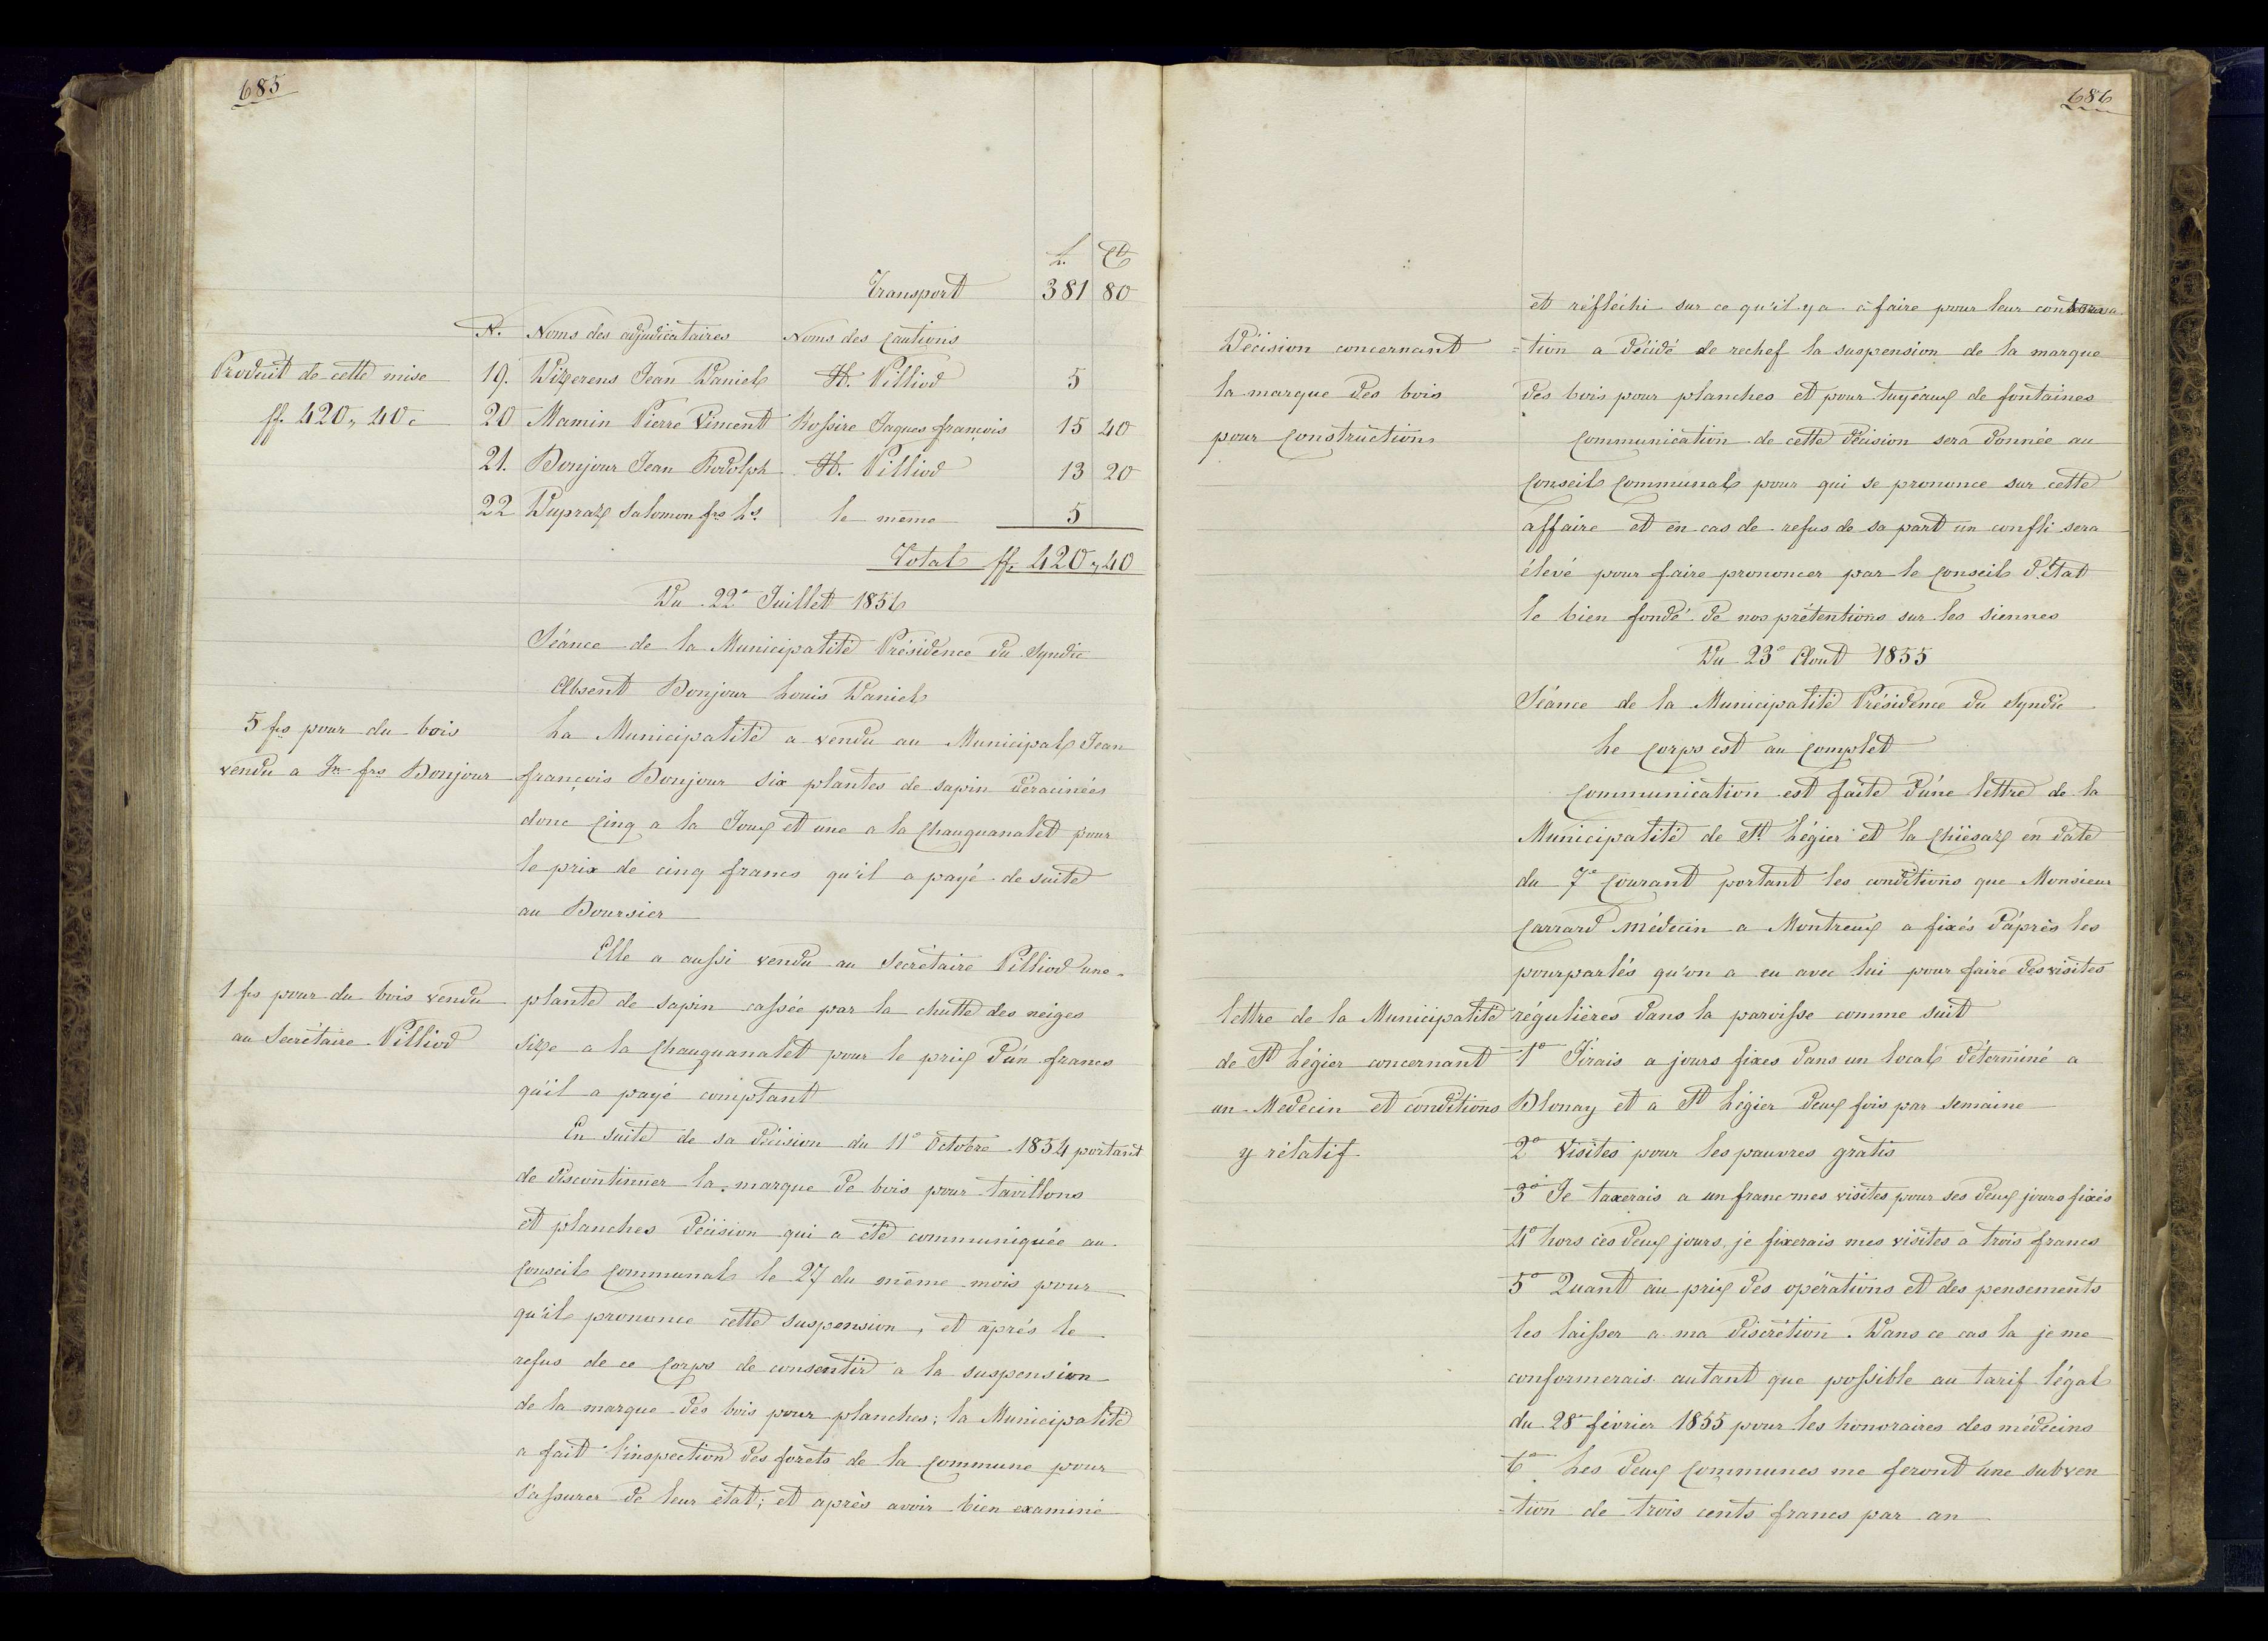 685
L. Ct
Transport 381 80
N. Noms des adjudicataires Noms des Cautions
Produit de cette mise
ff. 420„ 40 c
19. Dizerens Jean Daniel H. Pilliod 5
20 Mamin Pierre Vincent Rossire Jaques françois 15 40
21. Bonjour Jean Rodolph H. Pilliod 13 20
22 Dupraz Salomon frs Ls. le même 5
Total ff. 420„40
Du 22e Juillet 1856
Séance de la Municipalité Présidence du Syndic
Absent Bonjour Louis Daniel
5 frs pour du bois
vendu a Jn frs Bonjour
La Municipalité a vendu au Municipal Jean
françois Bonjour six plantes de sapin déracinées
donc Cinq a la Joux et une a la Chauquanalet pour
le prix de cinq francs qu'il a payé de suite
au Boursier
1 frs pour du bois vendu
au Secrétaire Pilliod
Elle a aussi vendu au Secrétaire Pilliod une
plante de sapin cassée par la chutte des neiges
size a la Chauquanalet pour le prix d'un francs
qu'il a payé comptant
En suite de sa décision du 11e Octobre 1854 portant
de discontinuer la marque de bois pour tavillons
et planches décision qui a été communiquée au
Conseil Communal le 27 du même mois pour
qu'il prononce cette suspension, et après le
refus de ce Corps de consentir a la suspension
de la marque des bois pour planches; la Municipalité
a fait l'inspection des forets de la Commune pour
s'assurer de leur état; et après avoir bien examiné
686
Décision concernant
la marque des bois
pour Constructions
et réfléchi sur ce qu'il y a à faire pour leur conserva
=tion a décidé de rechef la suspension de la marque
des bois pour planches et pour tuyeaux de fontaines
Communication de cette décision sera donnée au
Conseil Communal pour qui se prononce sur cette
affaire et en cas de refus de sa part un confli sera
élevé pour faire prononcer par le Conseil d'Etat
le bien fondé de nos prétentions sur les siennes
Du 23e Aout 1855
Séance de la Municipalité Présidence du Syndic
Le Corps est au Complet
Communication est faite d'une lettre de la
Municipalité de St Légier et la Chiesaz en date
du 7e Courant portant les conditions que Monsieur
Carrard médecin a Montreux a fixés d'après les
pourparlés qu'on a eu avec lui pour faire des visites
régulières dans la paroisse comme suit
lettre de la Municipalité
de St Légier concernant
un Medecin et conditions
y rélatif.
1o J'irais a jours fixes dans un local déterminé a
Blonay et a St Légier deux fois par semaine
2o Visites pour les pauvres gratis
3o Je taxerais a un franc mes visites pour ses deux jours fixés
4o hors ces deux jours, je fixerais mes visites a trois francs
5o Quant au prix des opérations et des pensements
les laisser a ma discrétion. Dans ce cas la je me
conformerais autant que possible au tarif légal
du 28e février 1855 pour les honoraires des médecins
6o Les deux Communes me feront une subven
=tion de trois cents francs par an